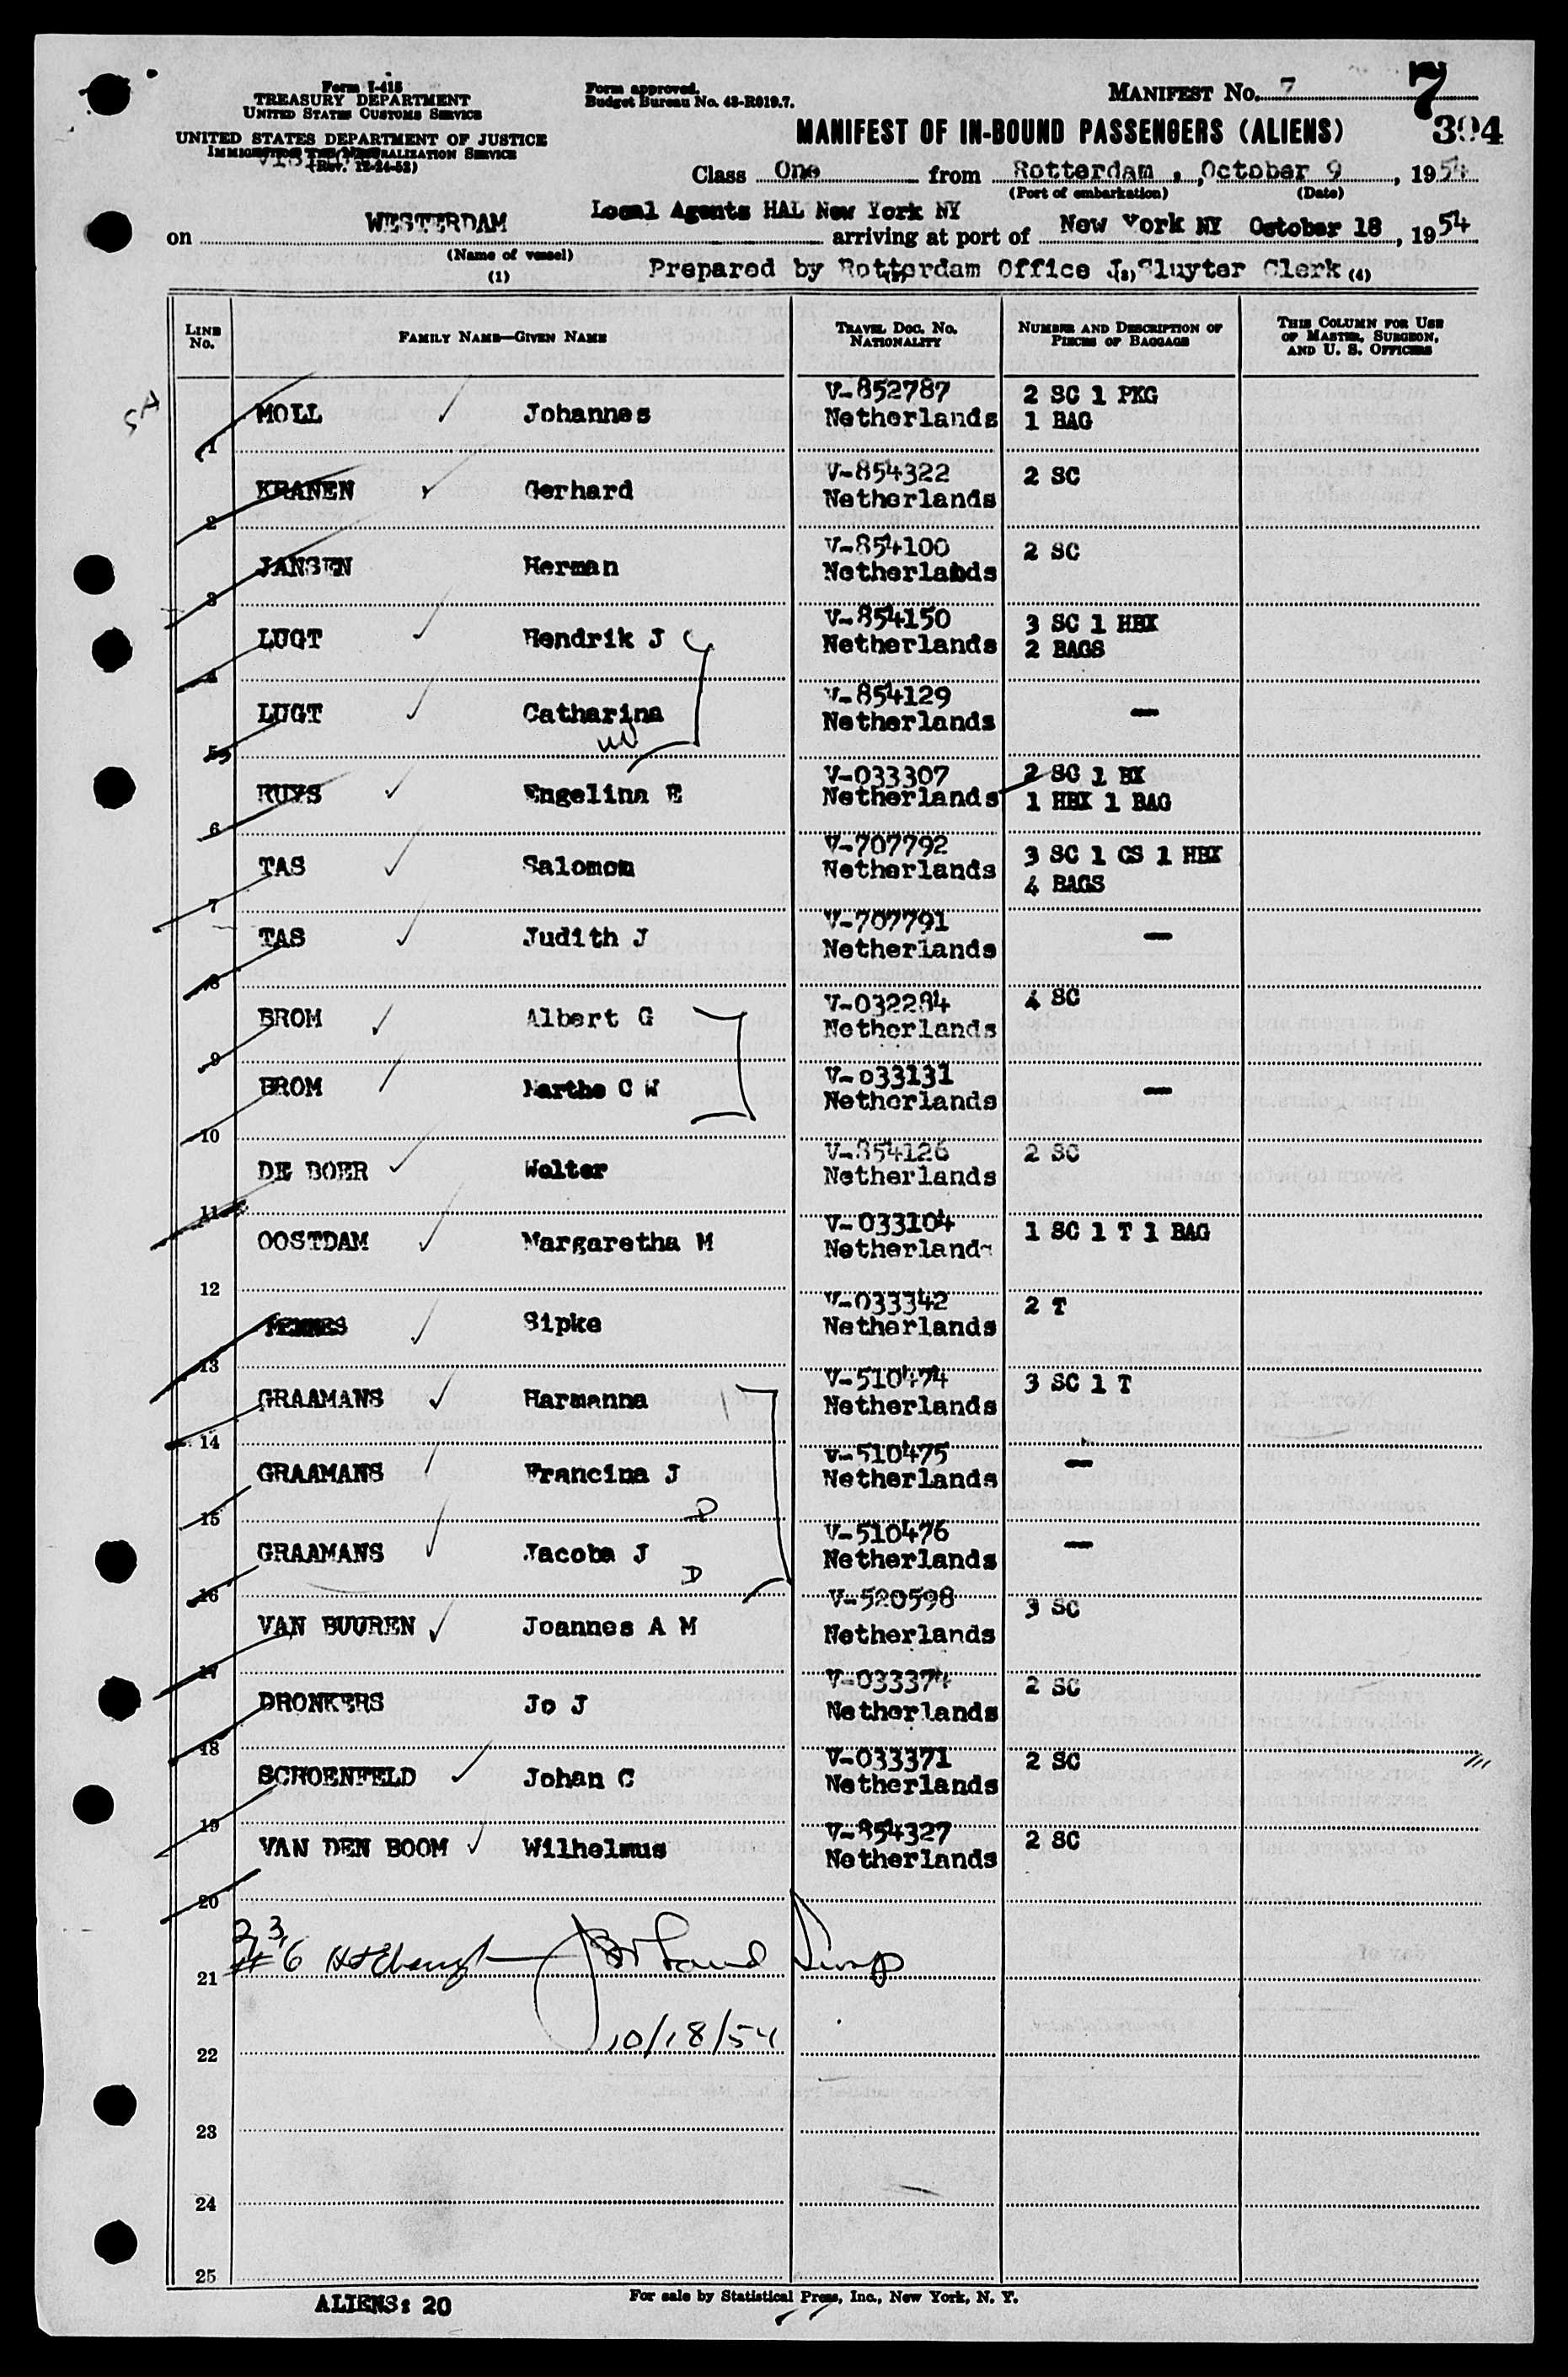 Form I-415
TREASURY DEPARTMENT
UNITED STATES CUSTOMS SERVICE
UNITED STATES DEPARTMENT OF JUSTICE
IMMIGRATION AND NATURALIZATION SERVICE
(Rev. 12-24-52)
Form approved.
Budget Bureau No. 43-R019.7.
MANIFEST No. 7
7
304
MANIFEST OF IN-BOUND PASSENGERS (ALIENS)
Class One from Rotterdam , October 9 , 1954
(Port of embarkation) (Date)
Local Agents HAL New York NY
on WESTERDAM arriving at port of New York NY October 18 , 1954
(Name of vessel)
Prepared by Rotterdam Office J. Sluyter Clerk
(1) (3) (4)
LINE No. FAMILY NAME—GIVEN NAME TRAVEL DOC. NO. NATIONALITY NUMBER AND DESCRIPTION OF PIECES OF BAGGAGE THIS COLUMN FOR USE OF MASTER, SURGEON, AND U. S. OFFICERS
SA
1 MOLL Johannes V-852787 Netherlands 2 SC 1 PKG 1 BAG
2 KRANEN Gerhard V-854322 Netherlands 2 SC
3 JANSEN Herman V-854100 Netherlands 2 SC
4 LUGT Hendrik J V-854150 Netherlands 3 SC 1 HBX 2 BAGS
5 LUGT Catharina V-854129 Netherlands —
6 RUYS Engelina E V-033307 Netherlands 2 SC 1 BX 1 HBX 1 BAG
7 TAS Salomon V-707792 Netherlands 3 SC 1 CS 1 HBX 4 BAGS
8 TAS Judith J V-707791 Netherlands —
9 BROM Albert G V-032284 Netherlands 4 SC
10 BROM Marthe C W V-033131 Netherlands —
11 DE BOER Wolter V-854126 Netherlands 2 SC
12 OOSTDAM Margaretha M V-033104 Netherlands 1 SC 1 T 1 BAG
13 Sipke V-033342 Netherlands 2 T
14 GRAAMANS Harmanna V-510474 Netherlands 3 SC 1 T
15 GRAAMANS Francina J D V-510475 Netherlands —
16 GRAAMANS Jacoba J D V-510476 Netherlands —
17 VAN BUUREN Joannes A M V-520598 Netherlands 3 SC
18 DRONKERS Jo J V-033374 Netherlands 2 SC
19 SCHOENFELD Johan C V-033371 Netherlands 2 SC
20 VAN DEN BOOM Wilhelmus V-854327 Netherlands 2 SC
21 #6
10/18/54
22
23
24
25
ALIENS: 20
For sale by Statistical Press, Inc., New York, N. Y.